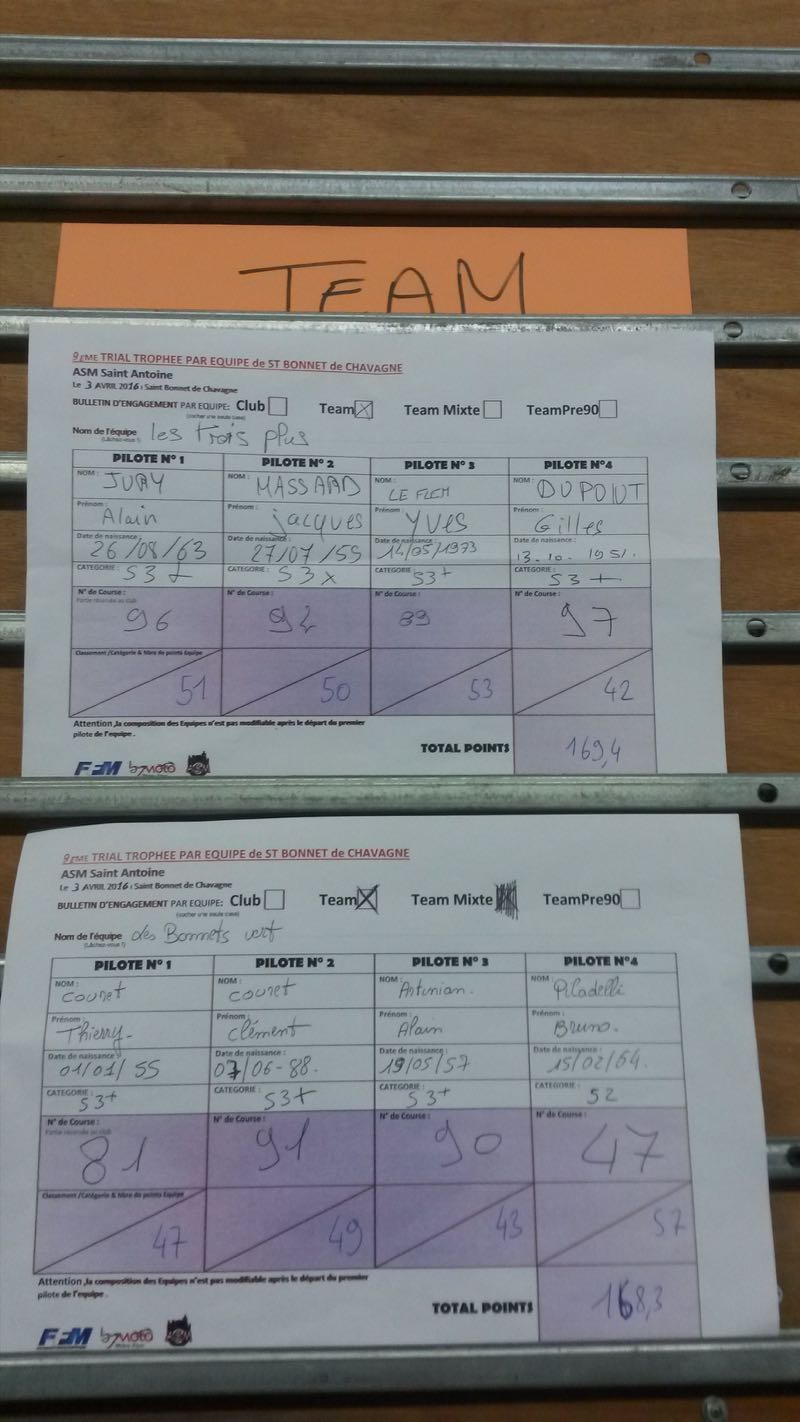 TEAM
9EME TRIAL TROPHEE PAR EQUIPE de ST BONNET de CHAVAGNE
ASM Saint Antoine
Le 3 AVRIL 2016 : Saint Bonnet de Chavagne
BULLETIN D'ENGAGEMENT PAR EQUIPE: Club Team Team Mixte TeamPre90
(cocher une seule case)
Nom de l'équipe les trois plus
(Lâchez-vous !)
PILOTE N° 1 PILOTE N° 2 PILOTE N° 3 PILOTE N°4
NOM : JURY NOM : MASSARD NOM : LE FLEM NOM : DUPONT
Prénom : Alain Prénom : jacques Prénom : YVES Prénom : Gilles
Date de naissance : 26/08/63 Date de naissance : 27/07/55 Date de naissance : 14/05/1973 Date de naissance : 13.10.1951.
CATEGORIE : S3+ CATEGORIE : S3x CATEGORIE : S3+ CATEGORIE : S3+
N° de Course : N° de Course : N° de Course : N° de Course :
Partie réservée au club
96 92 89 97
Classement /Catégorie & Nbre de points Equipe
51 50 53 42
Attention ,la composition des Equipes n'est pas modifiable après le départ du premier
pilote de l'equipe .
TOTAL POINTS 169,4
FFM
9EME TRIAL TROPHEE PAR EQUIPE de ST BONNET de CHAVAGNE
ASM Saint Antoine
Le 3 AVRIL 2016 : Saint Bonnet de Chavagne
BULLETIN D'ENGAGEMENT PAR EQUIPE: Club Team Team Mixte TeamPre90
(cocher une seule case)
Nom de l'équipe des Bonnets vert
(Lâchez-vous !)
PILOTE N° 1 PILOTE N° 2 PILOTE N° 3 PILOTE N°4
NOM : Couret NOM : Couret NOM : Artinian. NOM : Piladelli
Prénom : Thierry- Prénom : Clément Prénom : Alain Prénom : Bruno.
Date de naissance : 01/01/55 Date de naissance : 07/06-88. Date de naissance : 19/05/57 Date de naissance : 15/02/64.
CATEGORIE : S3+ CATEGORIE : S3+ CATEGORIE : S3+ CATEGORIE : S2
N° de Course : N° de Course : N° de Course : N° de Course :
Partie réservée au club
81 91 90 47
Classement /Catégorie & Nbre de points Equipe
47 49 43 57
Attention ,la composition des Equipes n'est pas modifiable après le départ du premier
pilote de l'equipe .
TOTAL POINTS 168,3
FFM